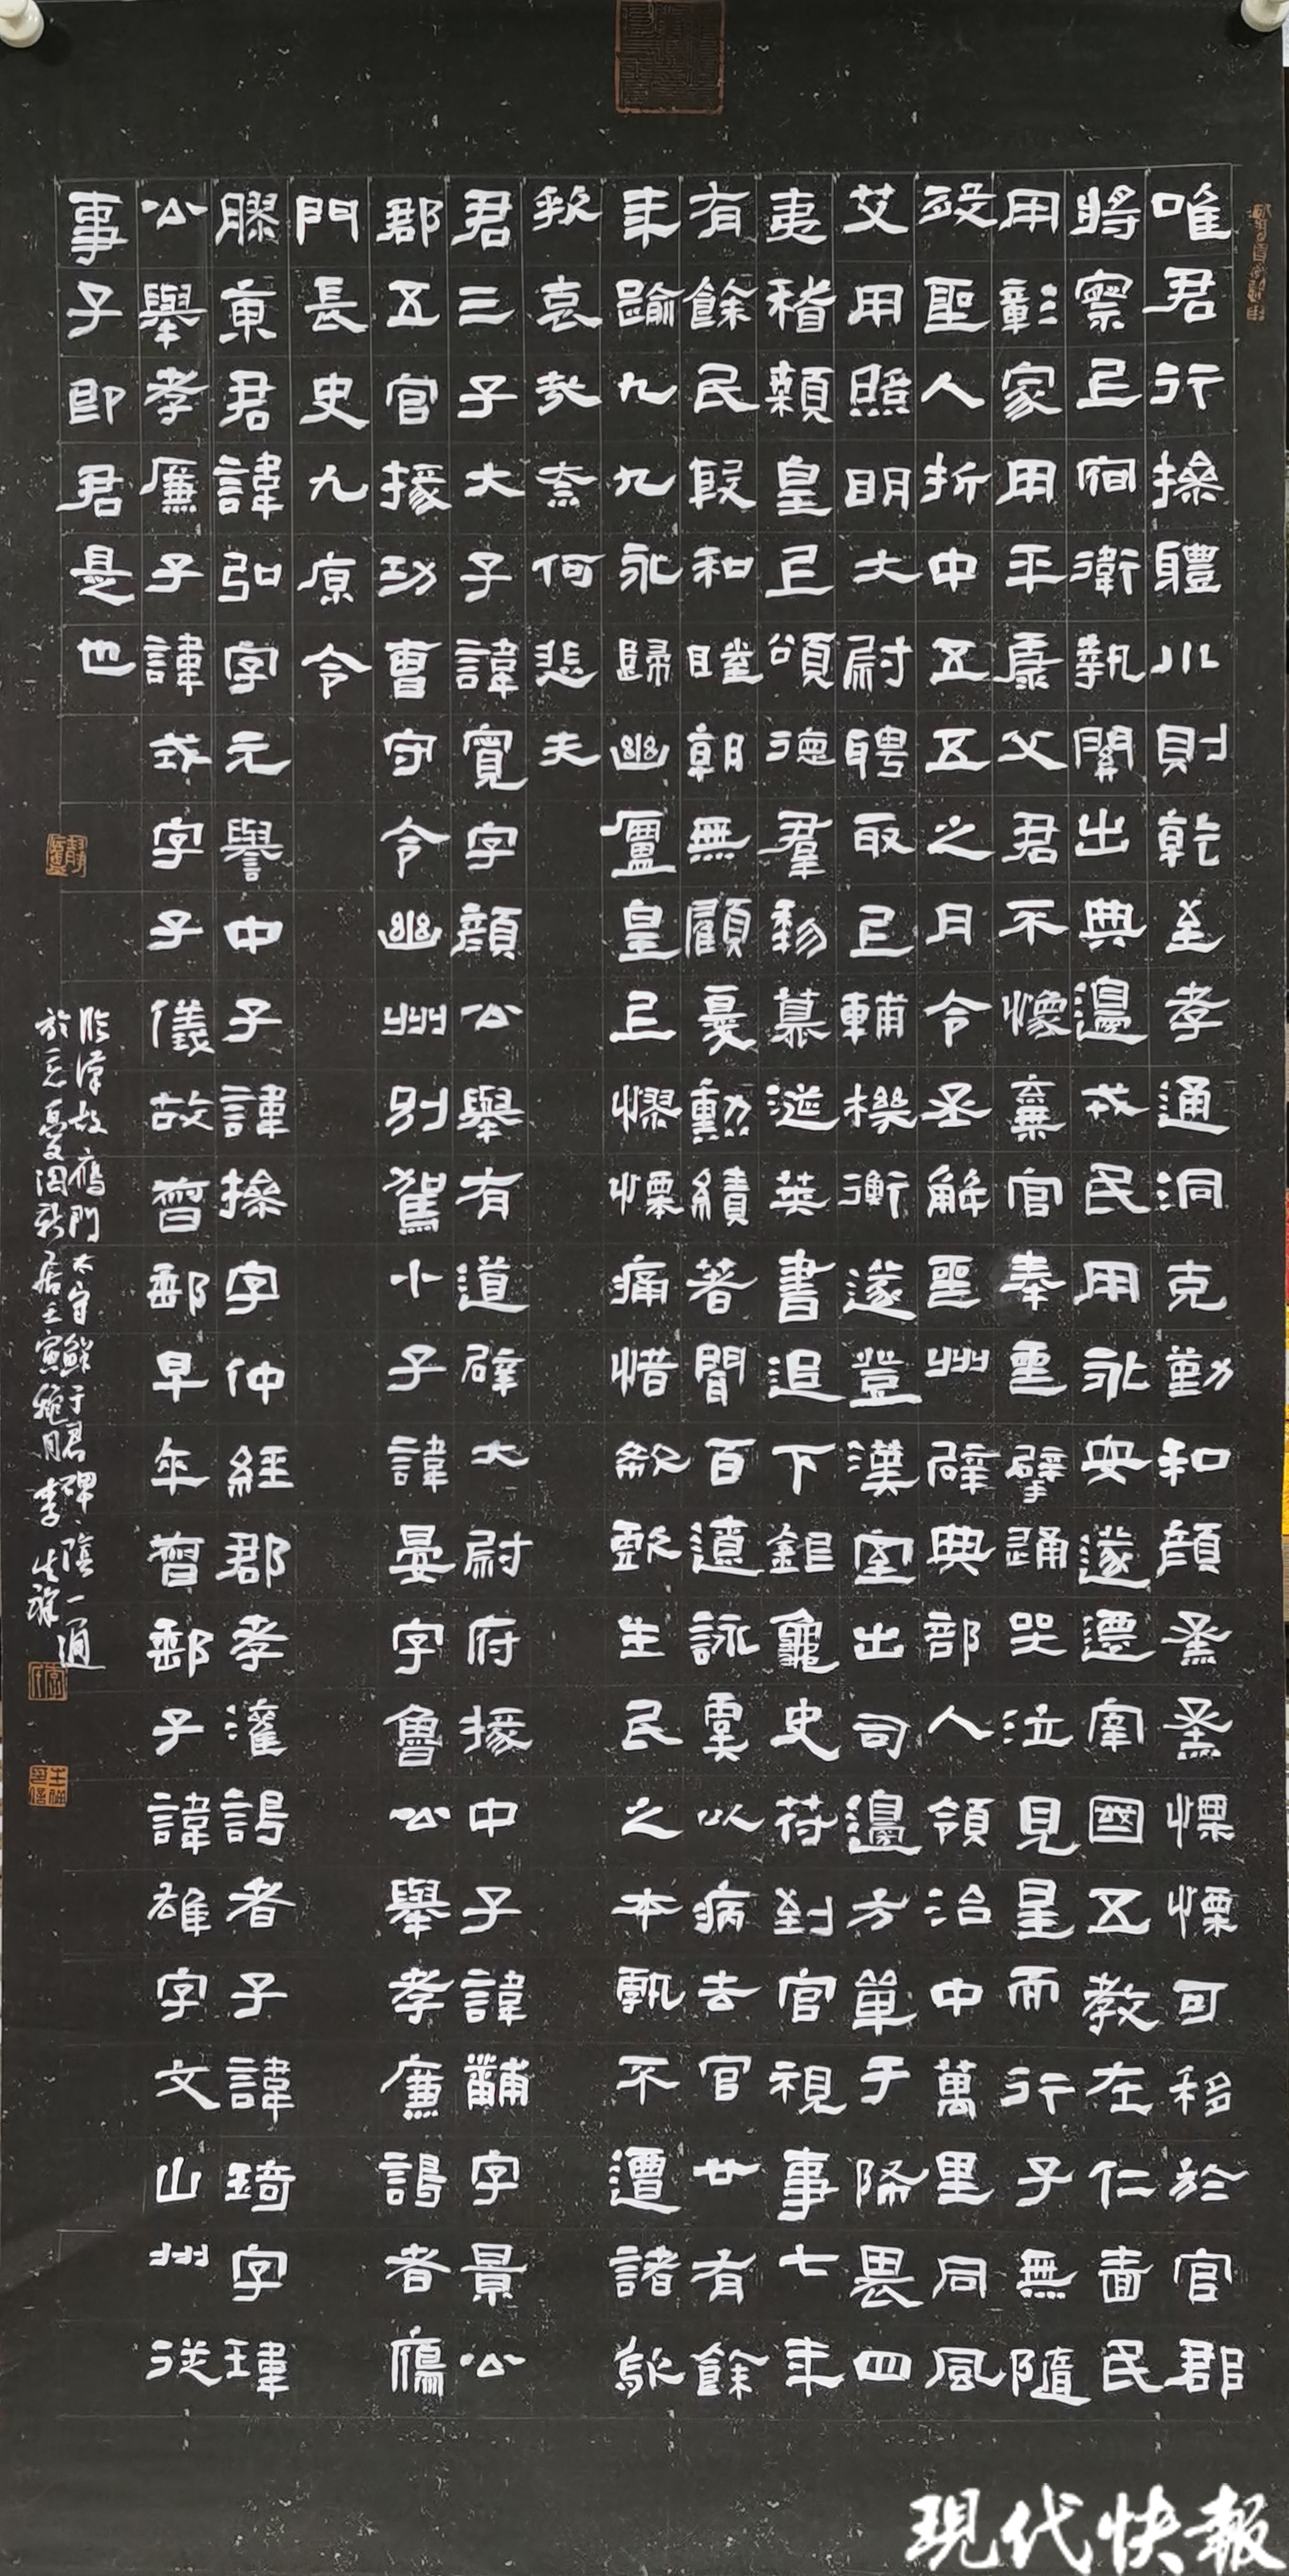 唯君行操體川則乾至孝通洞克勤和顏烝烝慄慄可移於官郡
將察㠯宿衛執關出典邊戎民用永安遂遷宰國五教在仁嗇民
用彰家用平康父君不像棄官奉喪擗踊哭泣見星而行子無隨
歿聖人折中五五之月令丞解喪州辟典部人領治中萬里同風
艾用照明大尉聘取㠯輔機衡遂登漢室出司邊方單于怖畏四
夷稽顙皇上頌德羣黎慕涎英書追下銀龜史符剖官視事七年
有餘民殷和睦朝無顧憂勳績著聞百遼詠虞以病去官廿有餘
年踰九九永歸幽廬皇上憀慄痛惜欷歔生民之本孰不遭諸欷
欷哀哉奈何悲夫
君三子大子諱寬字顏公舉有道辟大尉府掾中子諱黼字景公
郡五官掾功曹守令幽州別駕小子諱晏字魯公舉孝廉謁者雁
門長史九原令
膠東君諱弘字元譽中子諱操字仲經郡孝灌謁者子諱琦字瑋
公舉孝廉子諱戎字子儀故督郵早卒督郵子諱雄字文山州從
事子即君是也
臨漢故雁門太守鮮于君碑陰一通
現代快報